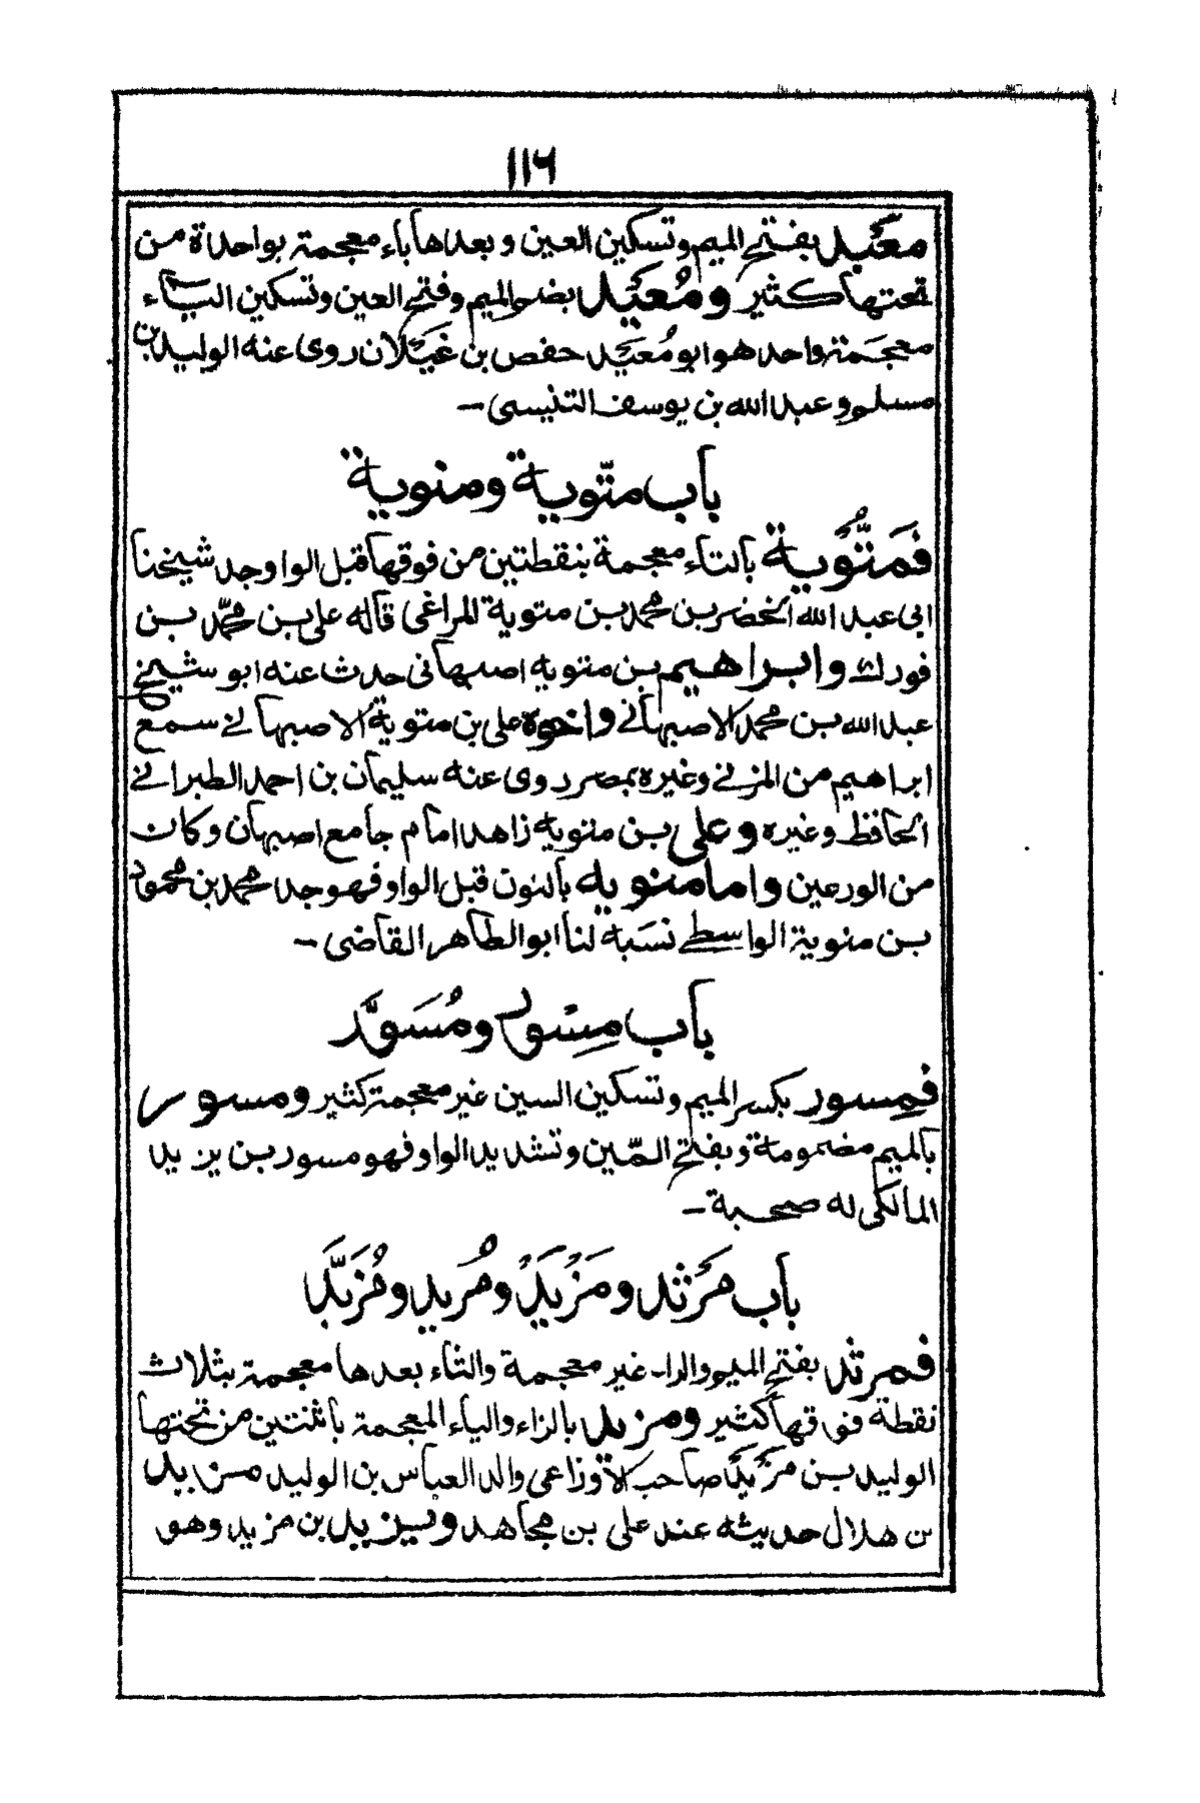 ١١٦
معبد بفتح الميم وتسكين العين وبعدها باء معجمة بواحدة من
تحتها كثير ومُعَيْد بضم الميم وفتح العين وتسكين الياء
معجمة واحد هو ابو مُعَيْد حفص بن غَيْلان روى عنه الوليد بن
مسلم وعبد الله بن يوسف التنيسى -
باب متّوية ومنوية
فمَتُّوية بالتاء معجمة بنقطتين من فوقها قبل الواو جد شيخنا
ابى عبد الله الخضر بن محمد بن متوية المراغى قاله على بن محمّد بن
فورك وابراهيم بن متويه اصبهانى حدث عنه ابو شيخ
عبد الله بن محمد الاصبهانى واخوه على بن متوية الاصبهانے سمع
ابراهيم من المزنے وغيره بمصر روى عنه سليمان بن احمد الطبرانے
الحافظ وغيره وعلى بن متويه زاهد امام جامع اصبهان وكان
من الورعين واما منويه بالنون قبل الواو فهو جد محمد بن محمود
بن منوية الواسطے نسبه لنا ابو الطاهر القاضى -
باب مِسْور ومُسَوَّر
فمِسور بكسر الميم وتسكين السين غير معجمة كثير ومسور
بالميم مضمومة وبفتح السّين وتشديد الواو فهو مسور بن يزيد
المالكى له صحبة -
باب مَرْثد ومَزْيَد ومُريد ومُزَبَّد
فمرثد بفتح الميم والراء غير معجمة والثاء بعدها معجمة بثلاث
نقطة فوقها كثير ومزيد بالزاء والياء المعجمة باثنتين من تحتها
الوليد بن مَزْيَد صاحب الاوزاعى والد العباس بن الوليد مزيد
بن هلال حديثه عند على بن مجاهد ويزيد بن مزيد وهو